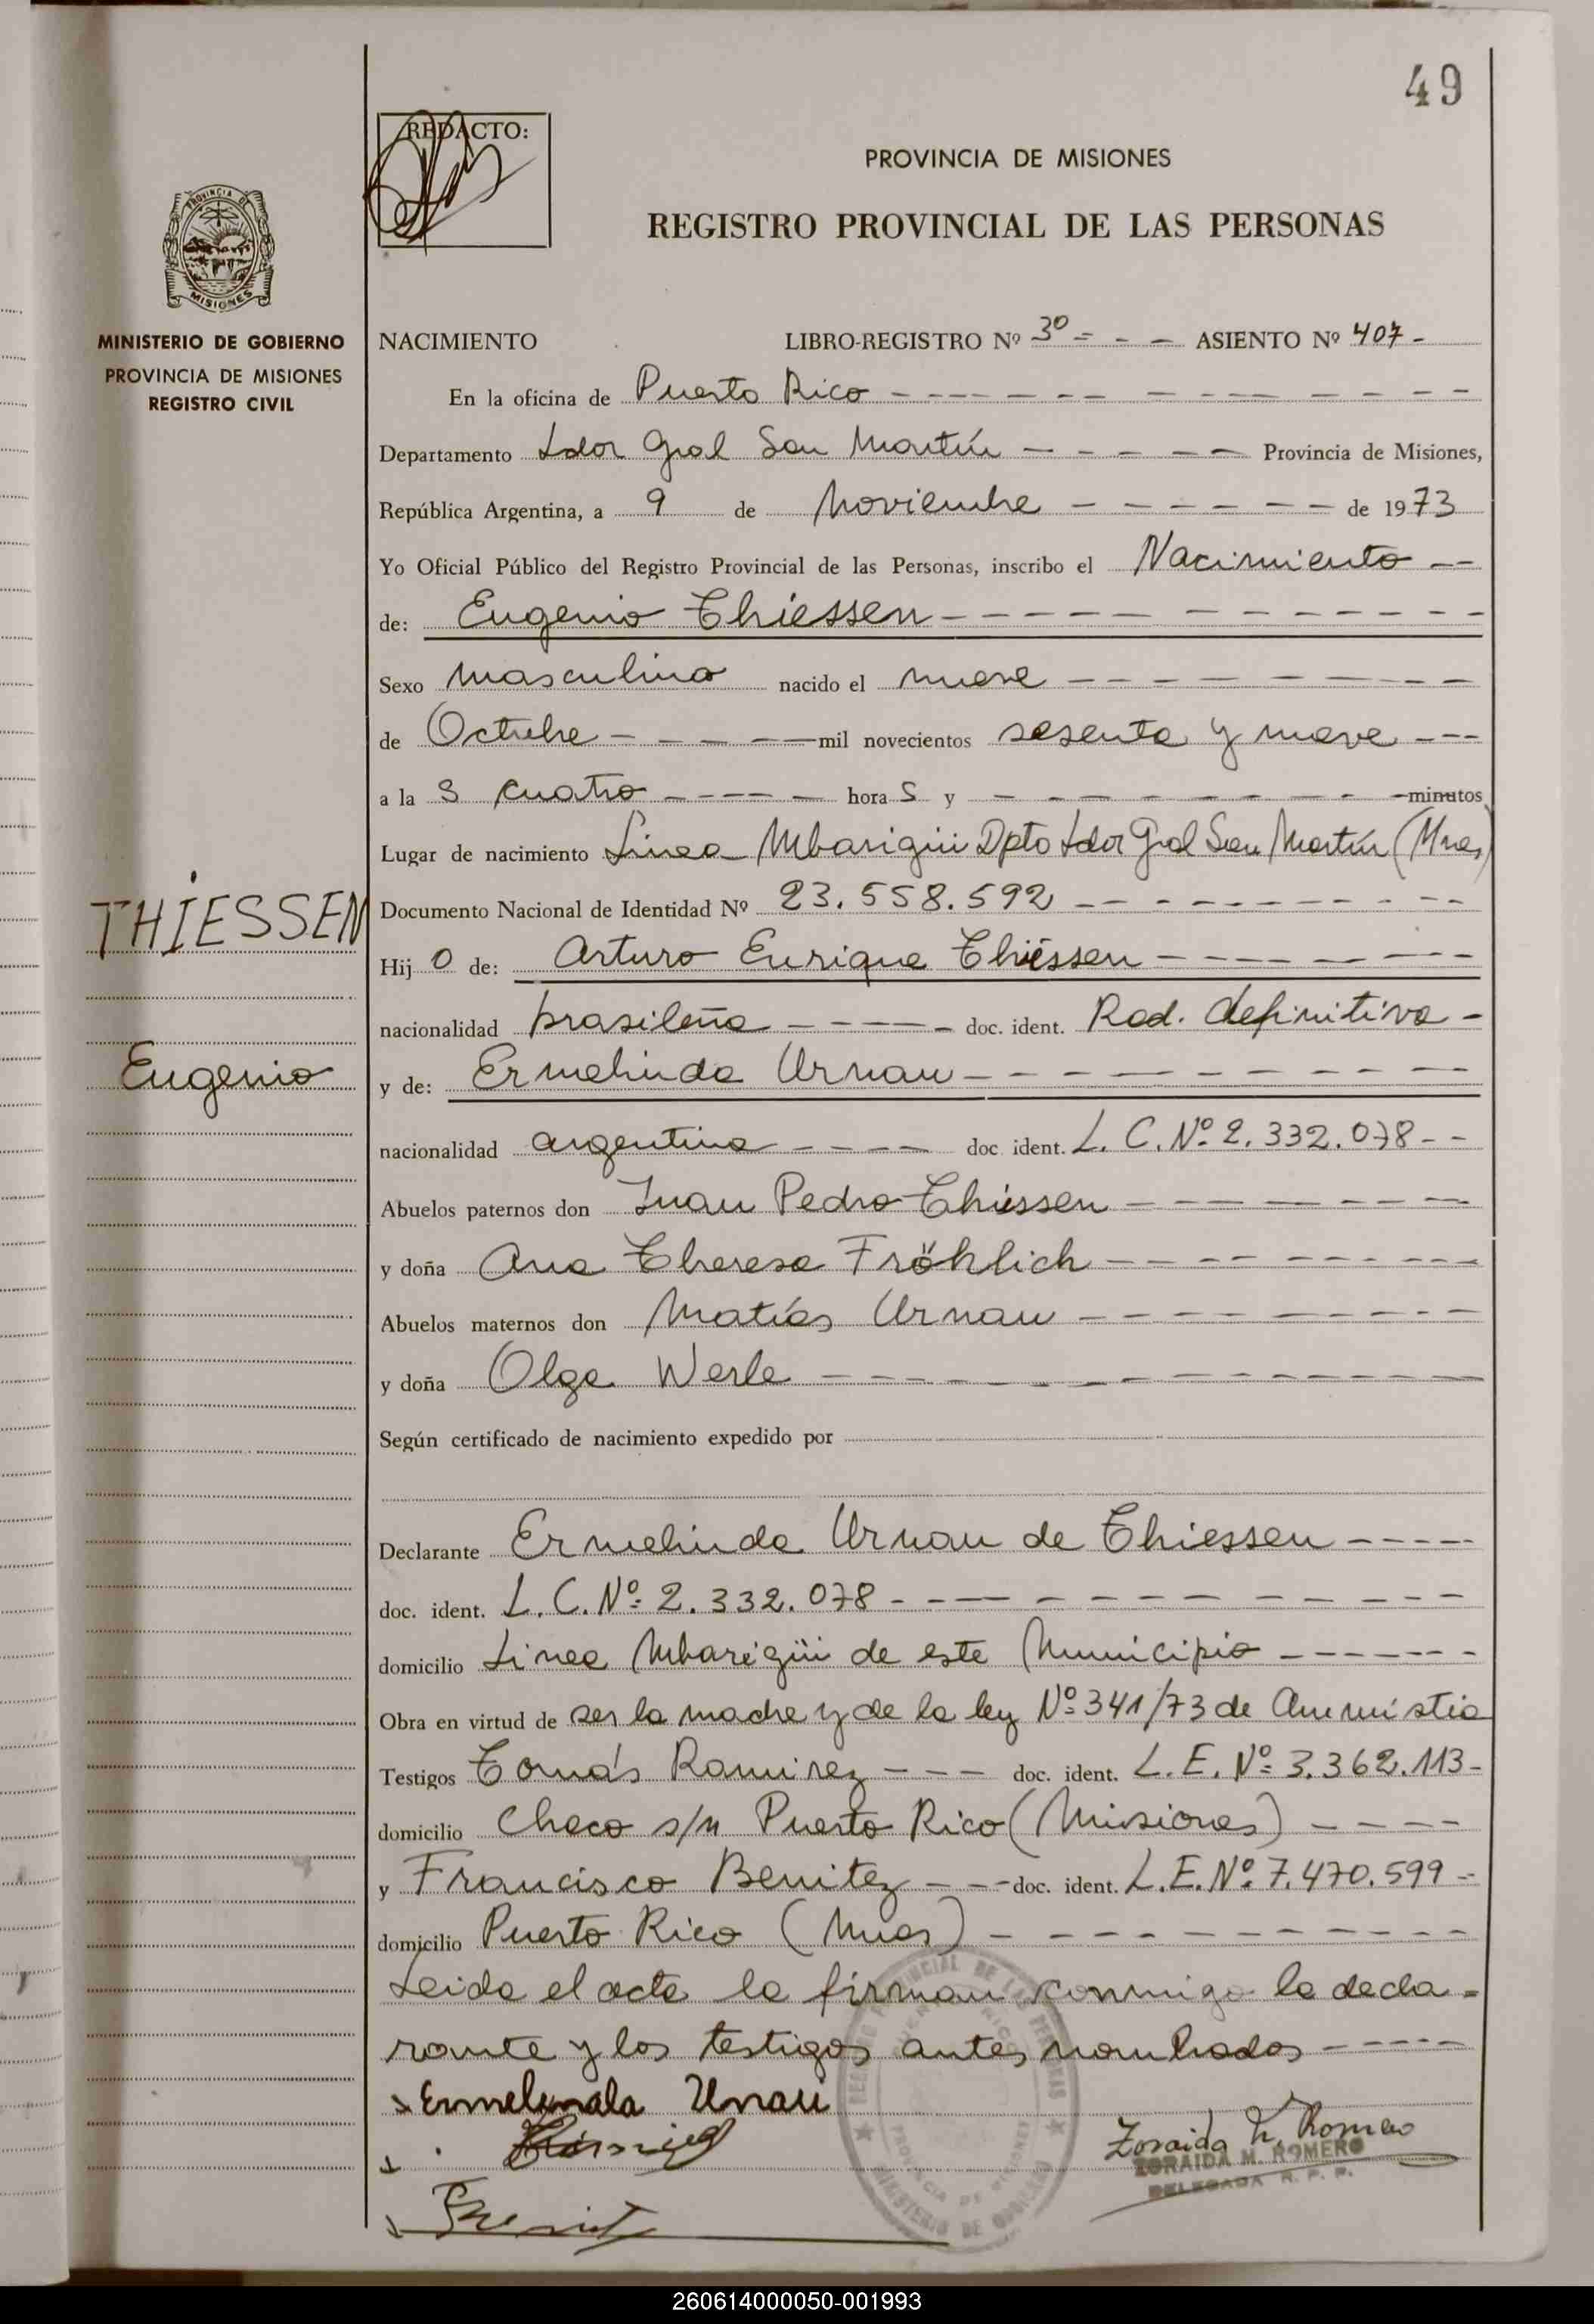 49
REDACTO:
PROVINCIA DE MISIONES
REGISTRO PROVINCIAL DE LAS PERSONAS
PROVINCIA DE
MISIONES
MINISTERIO DE GOBIERNO
PROVINCIA DE MISIONES
REGISTRO CIVIL
NACIMIENTO LIBRO-REGISTRO Nº 3º = - - ASIENTO Nº 407 -
En la oficina de Puerto Rico
Departamento Ldor Gral San Martín Provincia de Misiones,
República Argentina, a 9 de Noviembre de 1973
Yo Oficial Público del Registro Provincial de las Personas, inscribo el Nacimiento
de: Eugenio Thiessen
Sexo masculino nacido el nueve
de Octubre mil novecientos sesenta y nueve
a la s cuatro hora s y minutos
Lugar de nacimiento Linea Mbarigüi Dpto Ldor Gral San Martín (Mnes)
THIESSEN
Documento Nacional de Identidad Nº 23.558.592
Hij o de: Arturo Enrique Thiessen
nacionalidad brasileña doc. ident. Rad. definitiva -
Eugenio
y de: Ermelinda Urnau
nacionalidad argentina doc. ident. L. C. Nº 2.332.078 - -
Abuelos paternos don Juan Pedro Thiessen
y doña Ana Theresa Fröhlich
Abuelos maternos don Matías Urnau
y doña Olga Werle
Según certificado de nacimiento expedido por
Declarante Ermelinda Urnau de Thiessen
doc. ident. L. C. Nº 2.332.078
domicilio Linea Mbarigüi de este Municipio
Obra en virtud de ser la madre y de la ley Nº 341/73 de Ammistia
Testigos Tomás Ramirez doc. ident. L. E. Nº 3.362.113 -
domicilio Chaco s/n Puerto Rico (Misiones)
y Francisco Benitez doc. ident. L.E. Nº 7.470.599 -
domicilio Puerto Rico (Mnes)
Leida el acta la firman conmigo la decla =
rante y los testigos antes nombrados
Ermelinda Urnau
Zoraida M. Romero
ZORAIDA M. ROMERO
DELEGADA R. P. P.
260614000050-001993